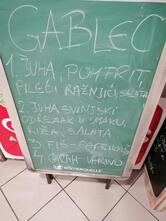 GABLEC
1. JUHA, POMFRIT,
PILEĆI RAŽNJIĆI, SALATA
2. JUHA, SVINJSKI
ODREZAK U UMAKU,
RIŽA, SALATA
3. FIŠ-PAPRIKAŠ
4. GRAH VARIVO